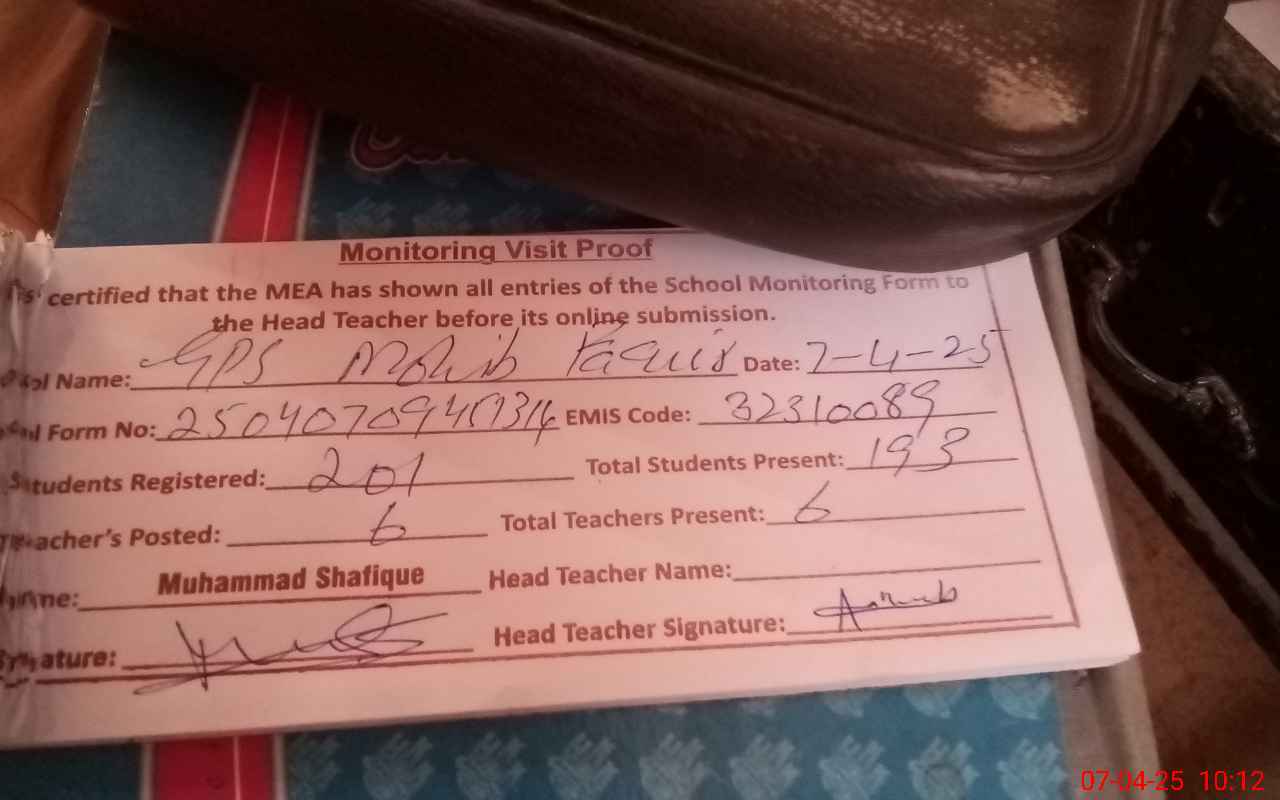 Monitoring Visit Proof
certified that the MEA has shown all entries of the School Monitoring Form to
the Head Teacher before its online submission.
Name: GPS Date: 7-4-25
Form No: EMIS Code: 32310089
Students Registered: 201 Total Students Present: 193
Teacher's Posted: 6 Total Teachers Present: 6
Muhammad Shafique Head Teacher Name:
Head Teacher Signature:
07-04-25 10:12